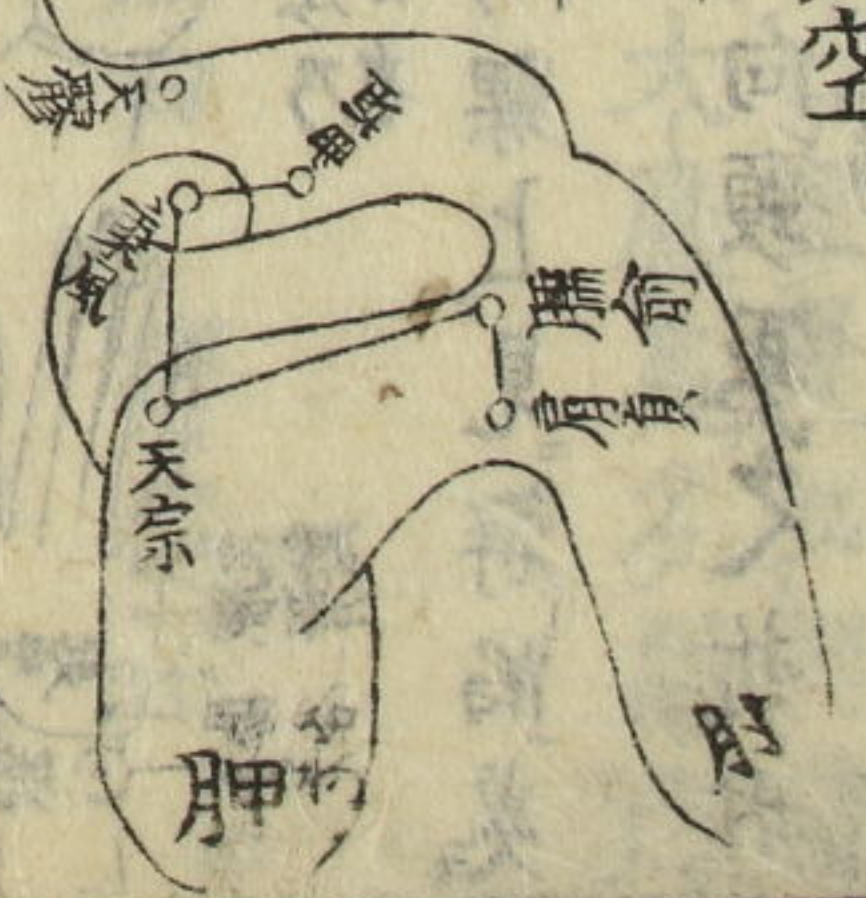 空
天髎
秉風
臑俞
肩貞
天宗
胛